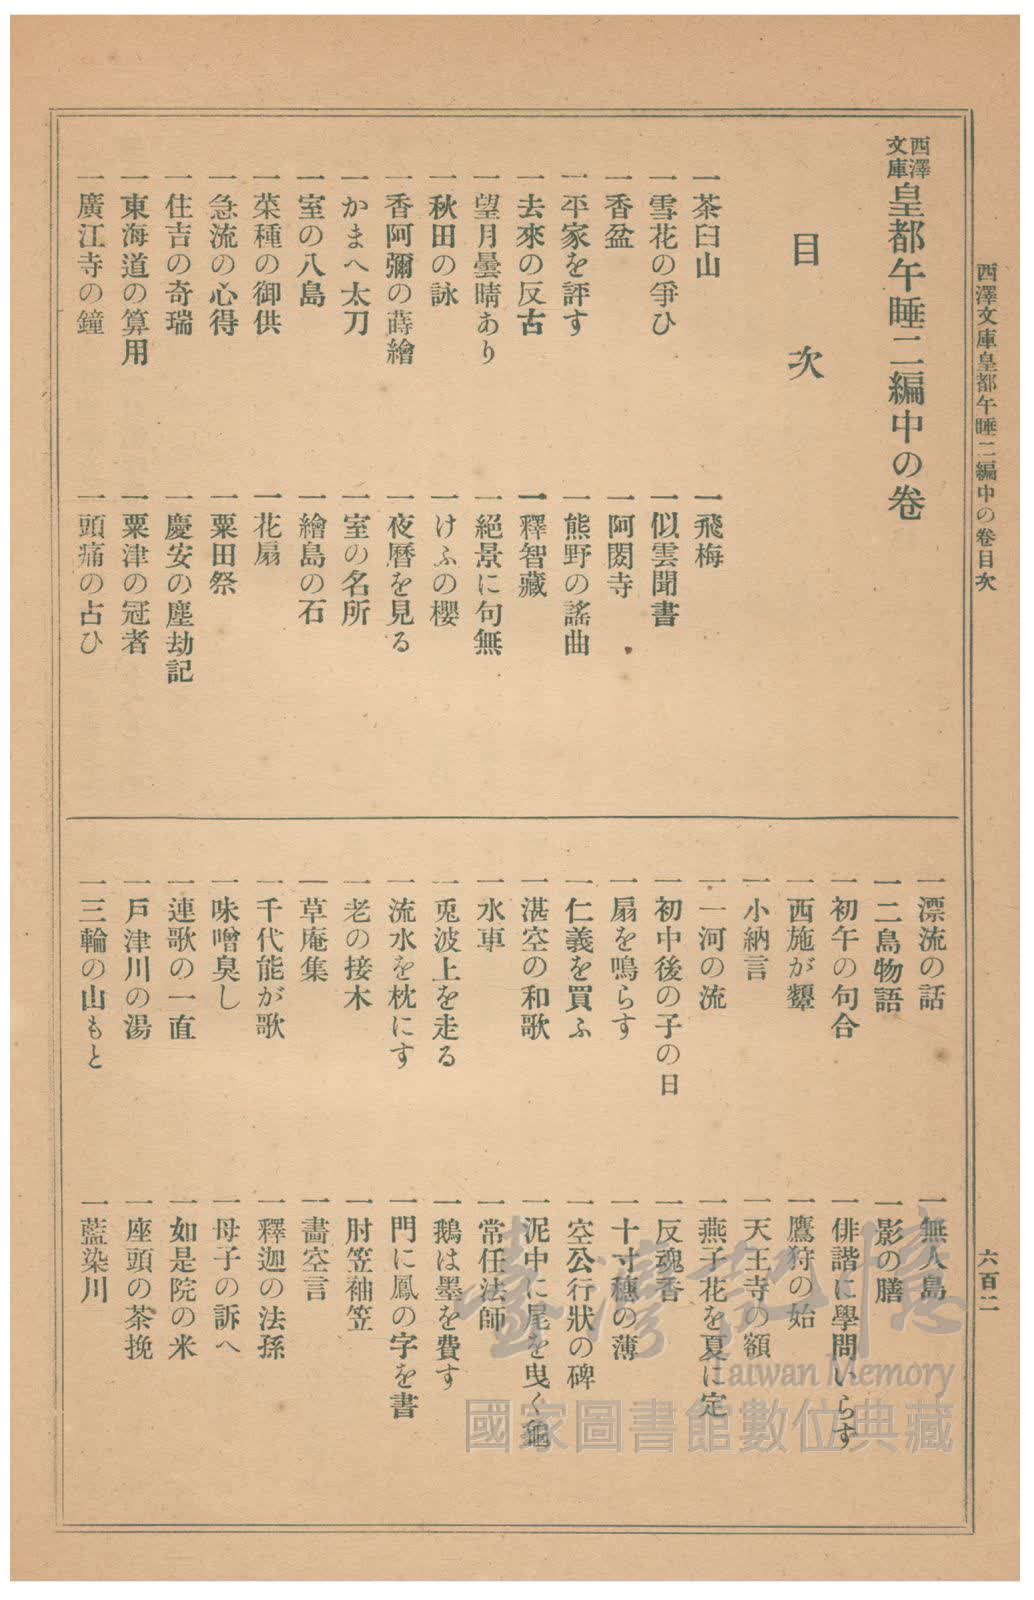 西澤文庫皇都午睡二編中の卷目次
六百二
西澤文庫 皇都午睡二編中の卷
目次
一茶臼山
一飛梅
一雪花の爭ひ
一似雲聞書
一香盆
一阿閦寺
一平家を評す
一熊野の謠曲
一去來の反古
一釋智藏
一望月曇晴あり
一絕景に句無
一秋田の詠
一けふの櫻
一香阿彌の蒔繪
一夜曆を見る
一かまへ太刀
一室の名所
一室の八島
一繪島の石
一菜種の御供
一花扇
一急流の心得
一粟田祭
一住吉の奇瑞
一慶安の塵劫記
一東海道の算用
一粟津の冠者
一廣江寺の鐘
一頭痛の占ひ
一漂流の話
一無人島
一二島物語
一影の膳
一初午の句合
一俳諧に學問いらす
一西施が顰
一鷹狩の始
一小納言
一天王寺の額
一一河の流
一燕子花を夏に定
一初中後の子の日
一反魂香
一扇を鳴らす
一十寸穗の薄
一仁義を買ふ
一空公行狀の碑
一湛空の和歌
一泥中に尾を曳く龜
一水車
一常任法師
一兎波上を走る
一鵝は墨を費す
一流水を枕にす
一門に鳳の字を書
一老の接木
一肘笠袖笠
一草庵集
一畵空言
一千代能が歌
一釋迦の法孫
一味噌臭し
一母子の訴へ
一連歌の一直
一如是院の米
一戸津川の湯
一座頭の茶挽
一三輪の山もと
一藍染川
臺灣記憶
Taiwan Memory
國家圖書館數位典藏